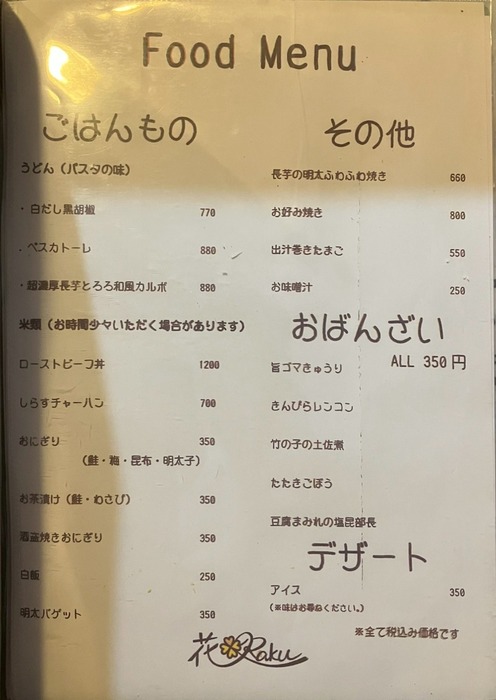 Food Menu
ごはんもの
うどん（パスタの味）
・白だし黒胡椒 770
・ペスカトーレ 880
・超濃厚長芋とろろ和風カルボ 880
米類（お時間少々いただく場合があります）
ローストビーフ丼 1200
しらすチャーハン 700
おにぎり 350
（鮭・梅・昆布・明太子）
お茶漬け（鮭・わさび） 350
酒盗焼きおにぎり 350
白飯 250
明太バゲット 350
その他
長芋の明太ふわふわ焼き 660
お好み焼き 800
出汁巻きたまご 550
お味噌汁 250
おばんざい
ALL 350円
旨ゴマきゅうり
きんぴらレンコン
竹の子の土佐煮
たたきごぼう
豆腐まみれの塩昆部長
デザート
アイス 350
（※味はお尋ねください。）
※全て税込み価格です
花Raku